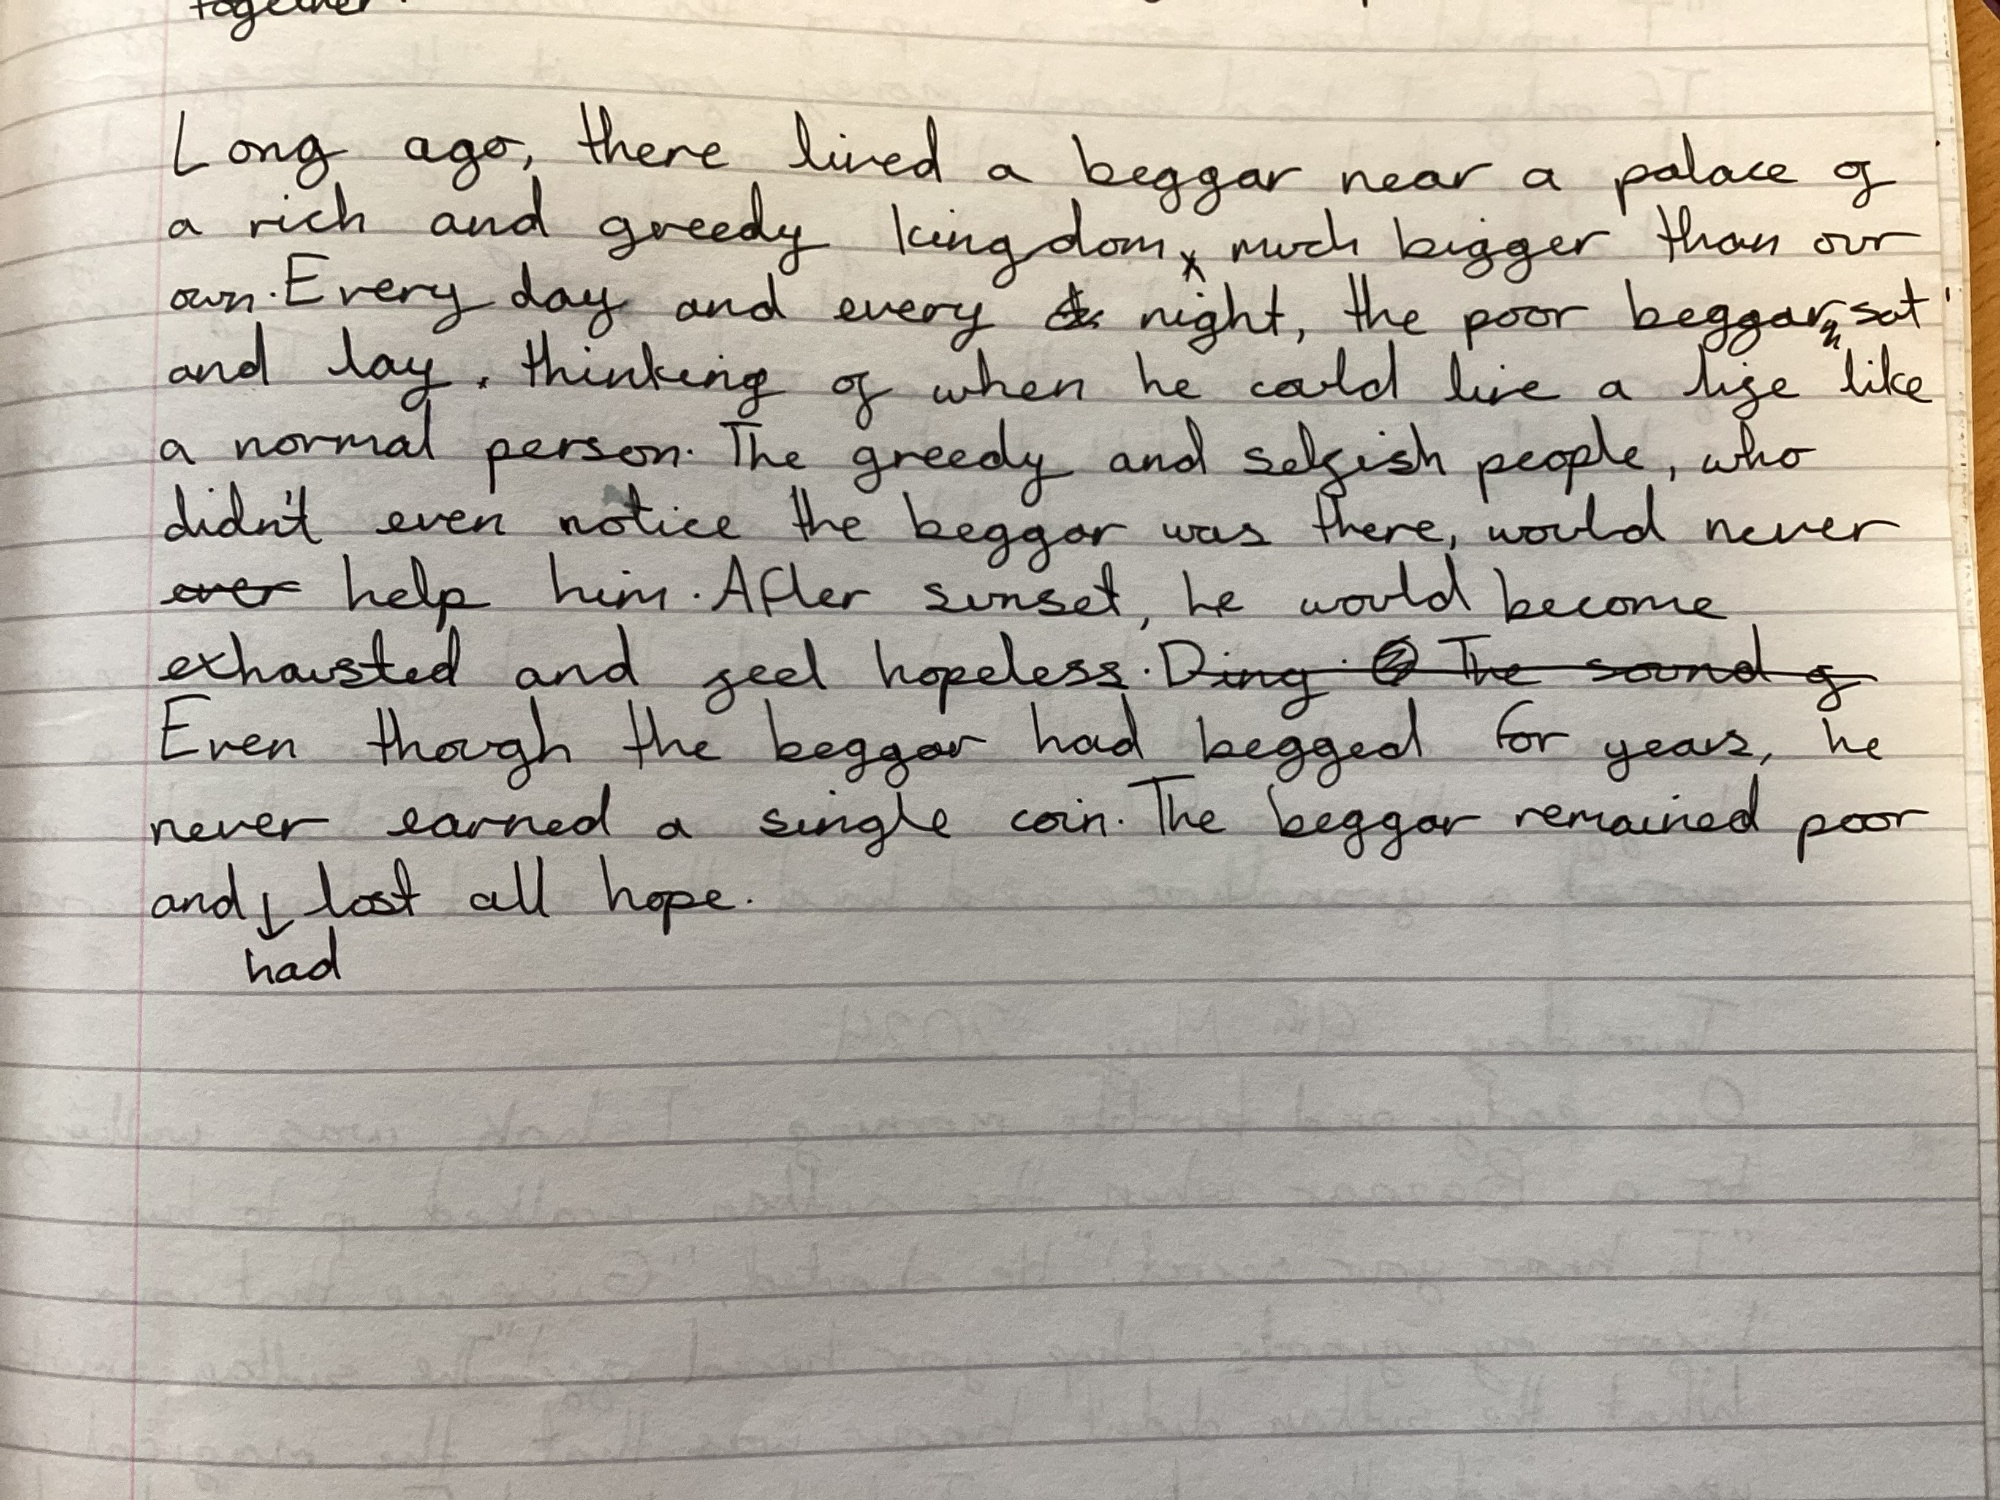 together.
Long ago, there lived a beggar near a palace of
a rich and greedy kingdom, much bigger than our
own. Every day and every night, the poor beggar sat
and lay, thinking of when he could live a life like
a normal person. The greedy and selfish people, who
didn't even notice the beggar was there, would never
ever help him. After sunset, he would become
exhausted and feel hopeless. Ding. The sound of
Even though the beggar had begged for years, he
never earned a single coin. The beggar remained poor
and lost all hope.
had